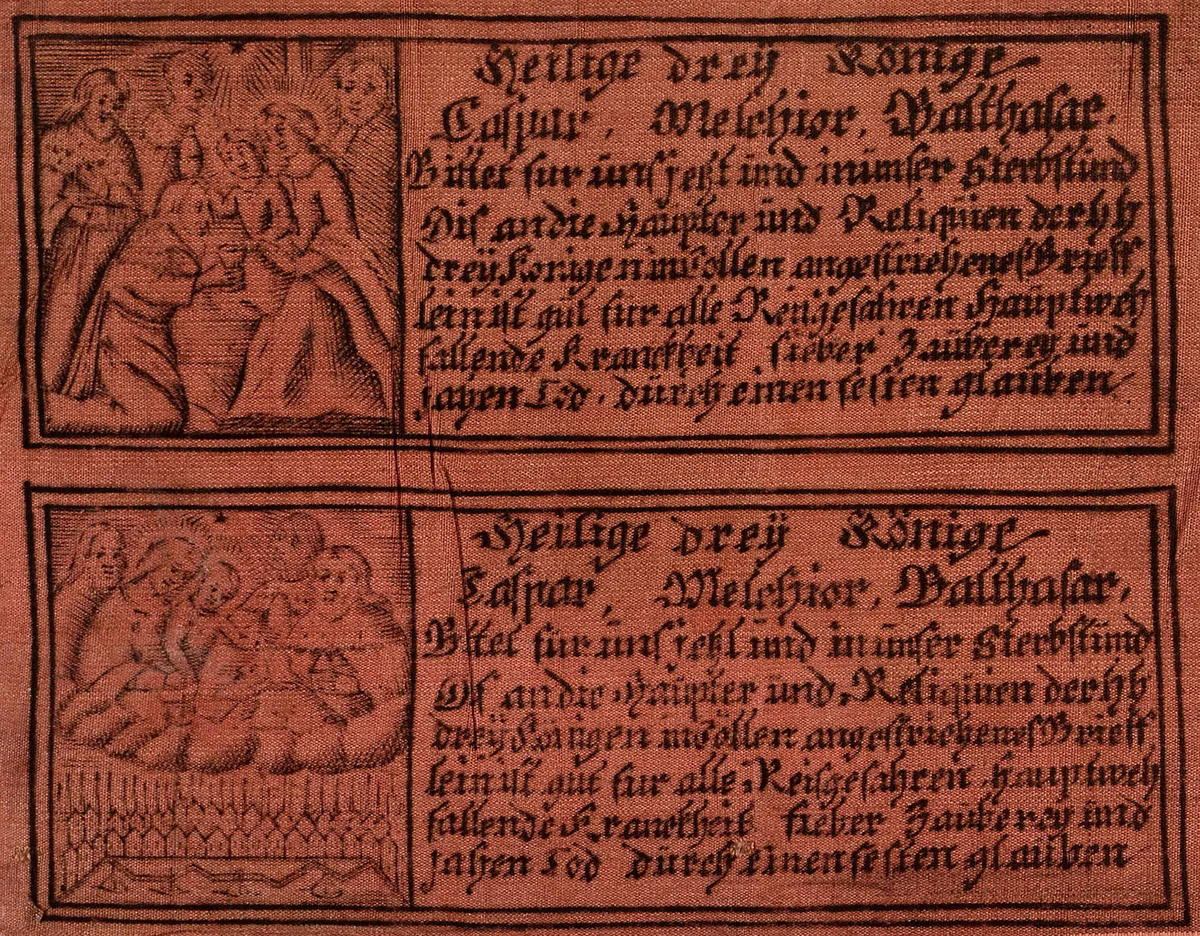 Heilige dreÿ Könige
Caspar, Melchior, Balthasar,
Bittet fur ünß jetzt ünd in ünser Sterbstünd
Diß an die Haüpter ünd Reliqüien der HH
dreÿ Konigen in Cöllen angestrichenes Brieff
lein ist güt für alle Reißgefahren Haüptweh
fallende Kranckheit fieber Zaüberey ünd
jahen Tod, dürch einen festen glaüben
Heilige dreÿ Könige
Caspar, Melchior, Balthasar,
Bitet für ünß jetzt ünd in ünser Sterbstünd
Diß an die Haüpter ünd Reliqüien der HH
dreÿ Königen in Cöllen angestrichenes Brieff
lein ist güt für alle Reißgefahren Haüptweh
fallende Kranckheit fieber Zaüberey ünd
jahen Tod dürch einen festen glaüben